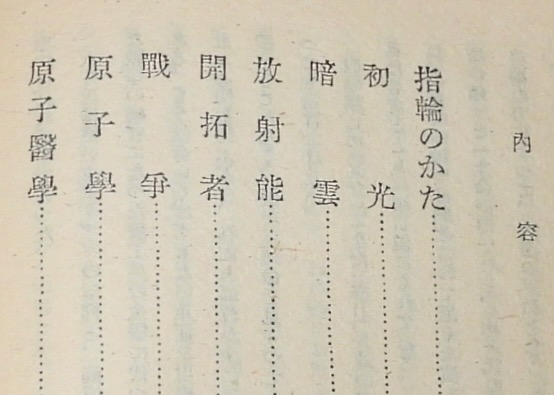 內容
指輪のかた
初光
暗雲
放射能
開拓者
戰爭
原子學
原子醫學